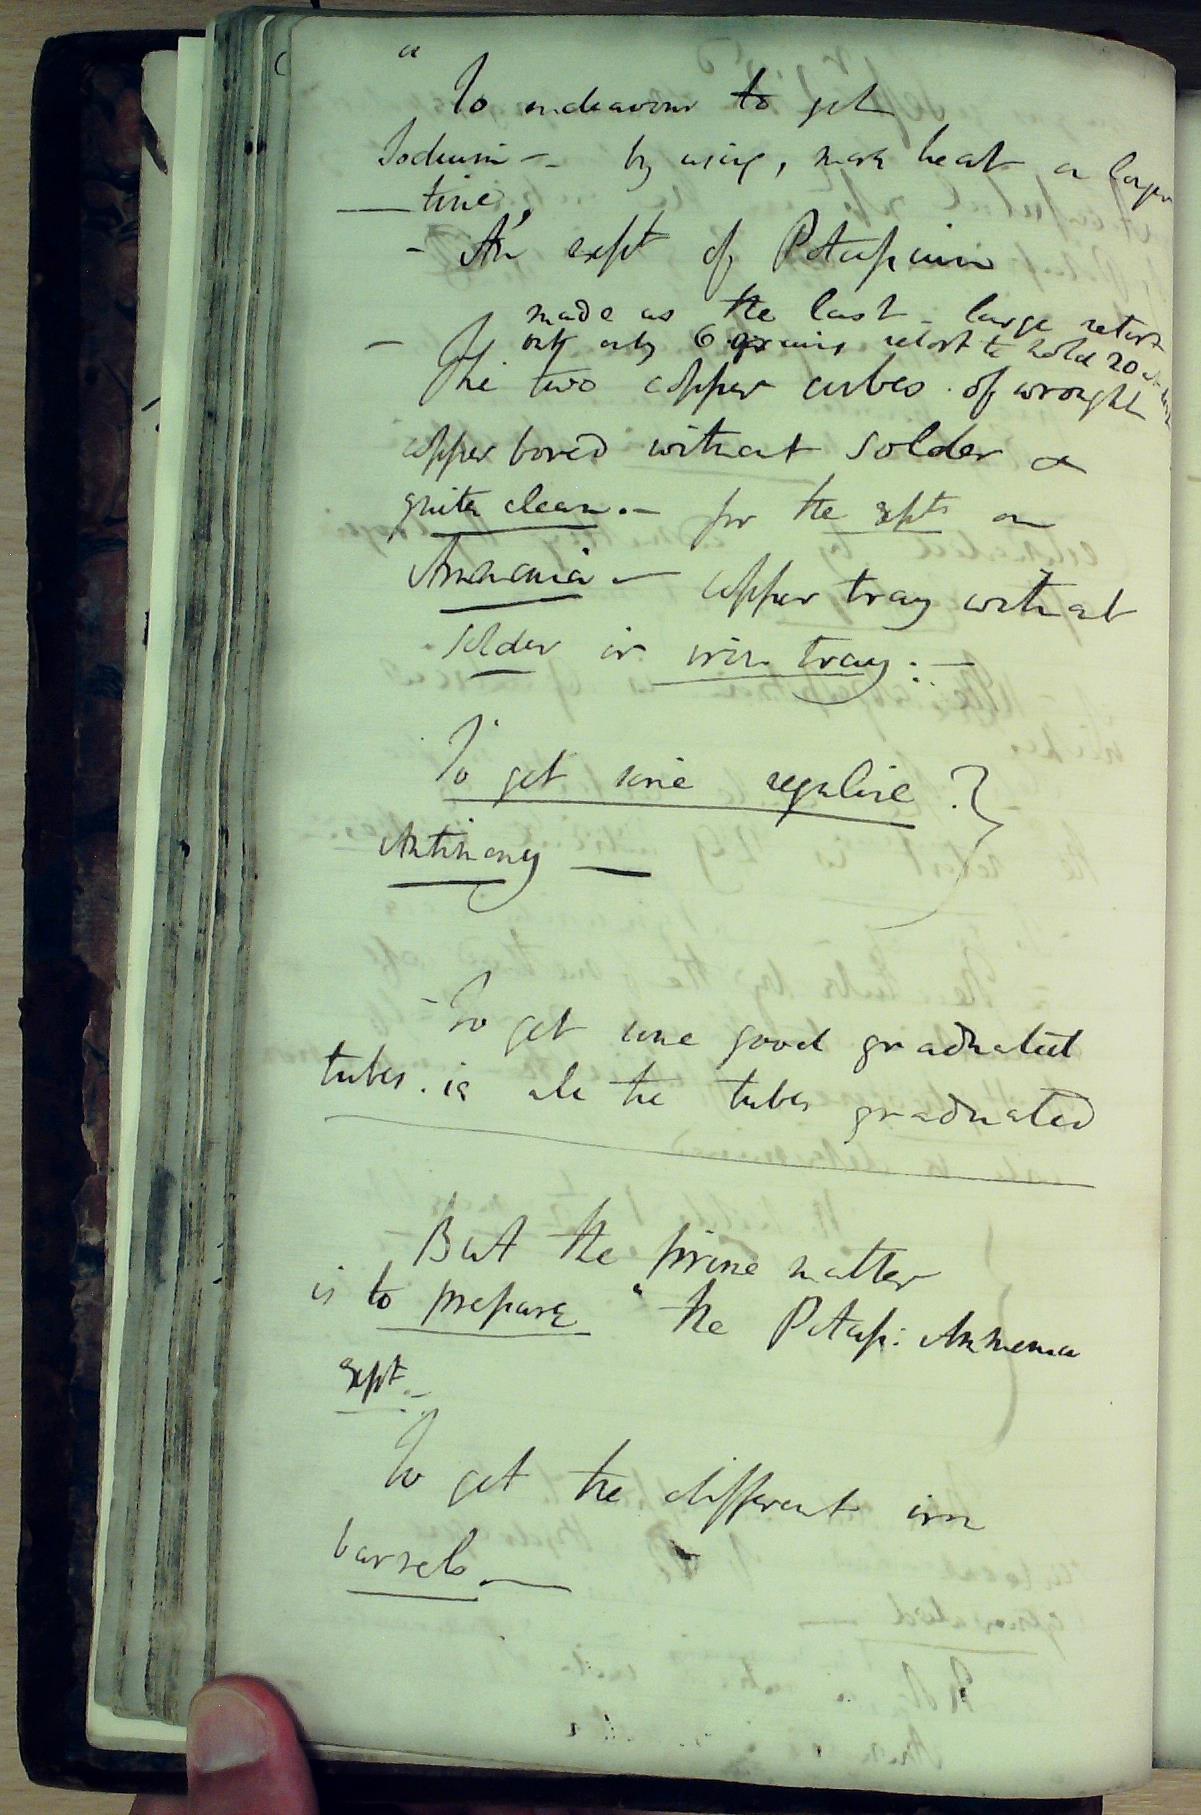 "
To endeavour to get
Sodium -- by using, more heat or longer
time,
- An expt of Potassium
made as the last - large retort
- only 6 grains retort to hold 20
The two copper cubes. of wrought
copper bored without solder &
quite clean. - for the expts on
Ammonia - copper tray without
solder or iron tray: -
To get some reguline ?}
Antimony —
- To get some good graduated
tubes. is all the tubes graduated
But the prime matter
is to prepare " the Potass: Ammonia
expt -
To get the different iron
barrels —